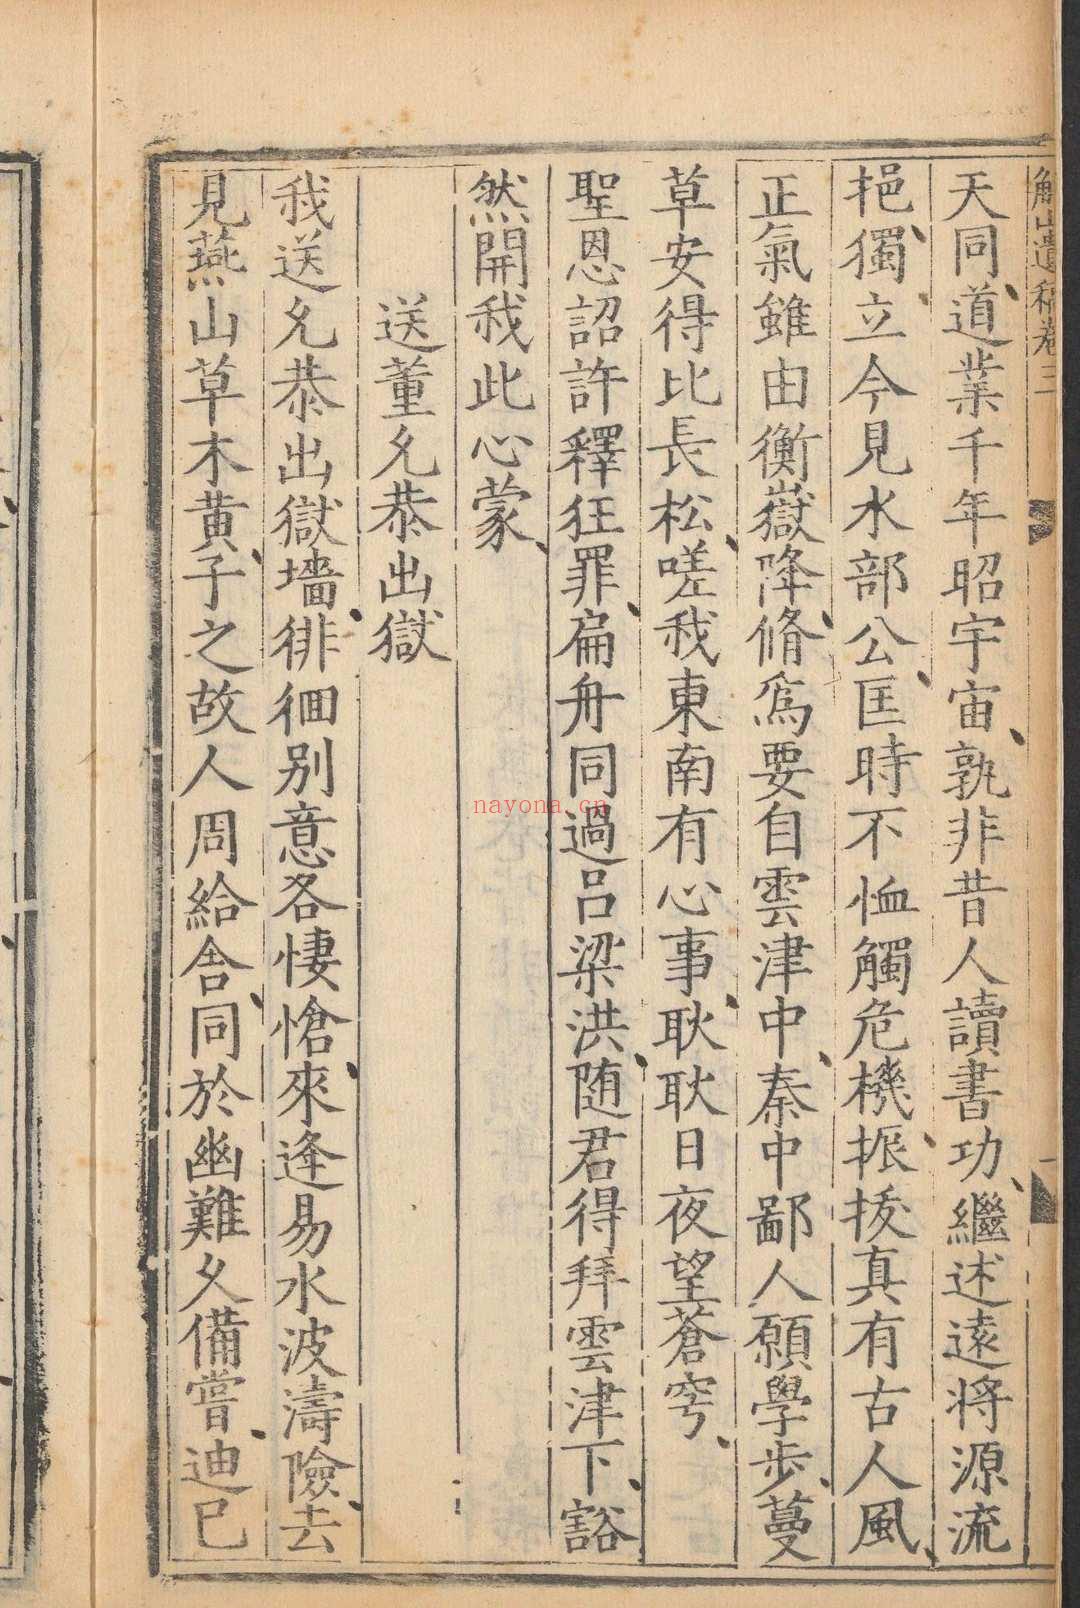 斛山遺稿卷三
天同道業千年昭宇宙孰非昔人讀書功繼述遠將源流
挹獨立今見水部公匡時不恤觸危機振拔真有古人風
正氣雖由衡嶽降脩爲要自雲津中秦中鄙人願學步蔓
草安得比長松嗟我東南有心事耿耿日夜望蒼穹
聖恩詔許釋狂罪扁舟同過呂梁洪随君得拜雲津下豁
然開我此心蒙
送董允恭出獄
我送允恭出獄墻徘徊别意各悽愴來逢易水波濤險去
見燕山草木黄子之故人周給舍同於幽難久備嘗迪巳
nayona.cn